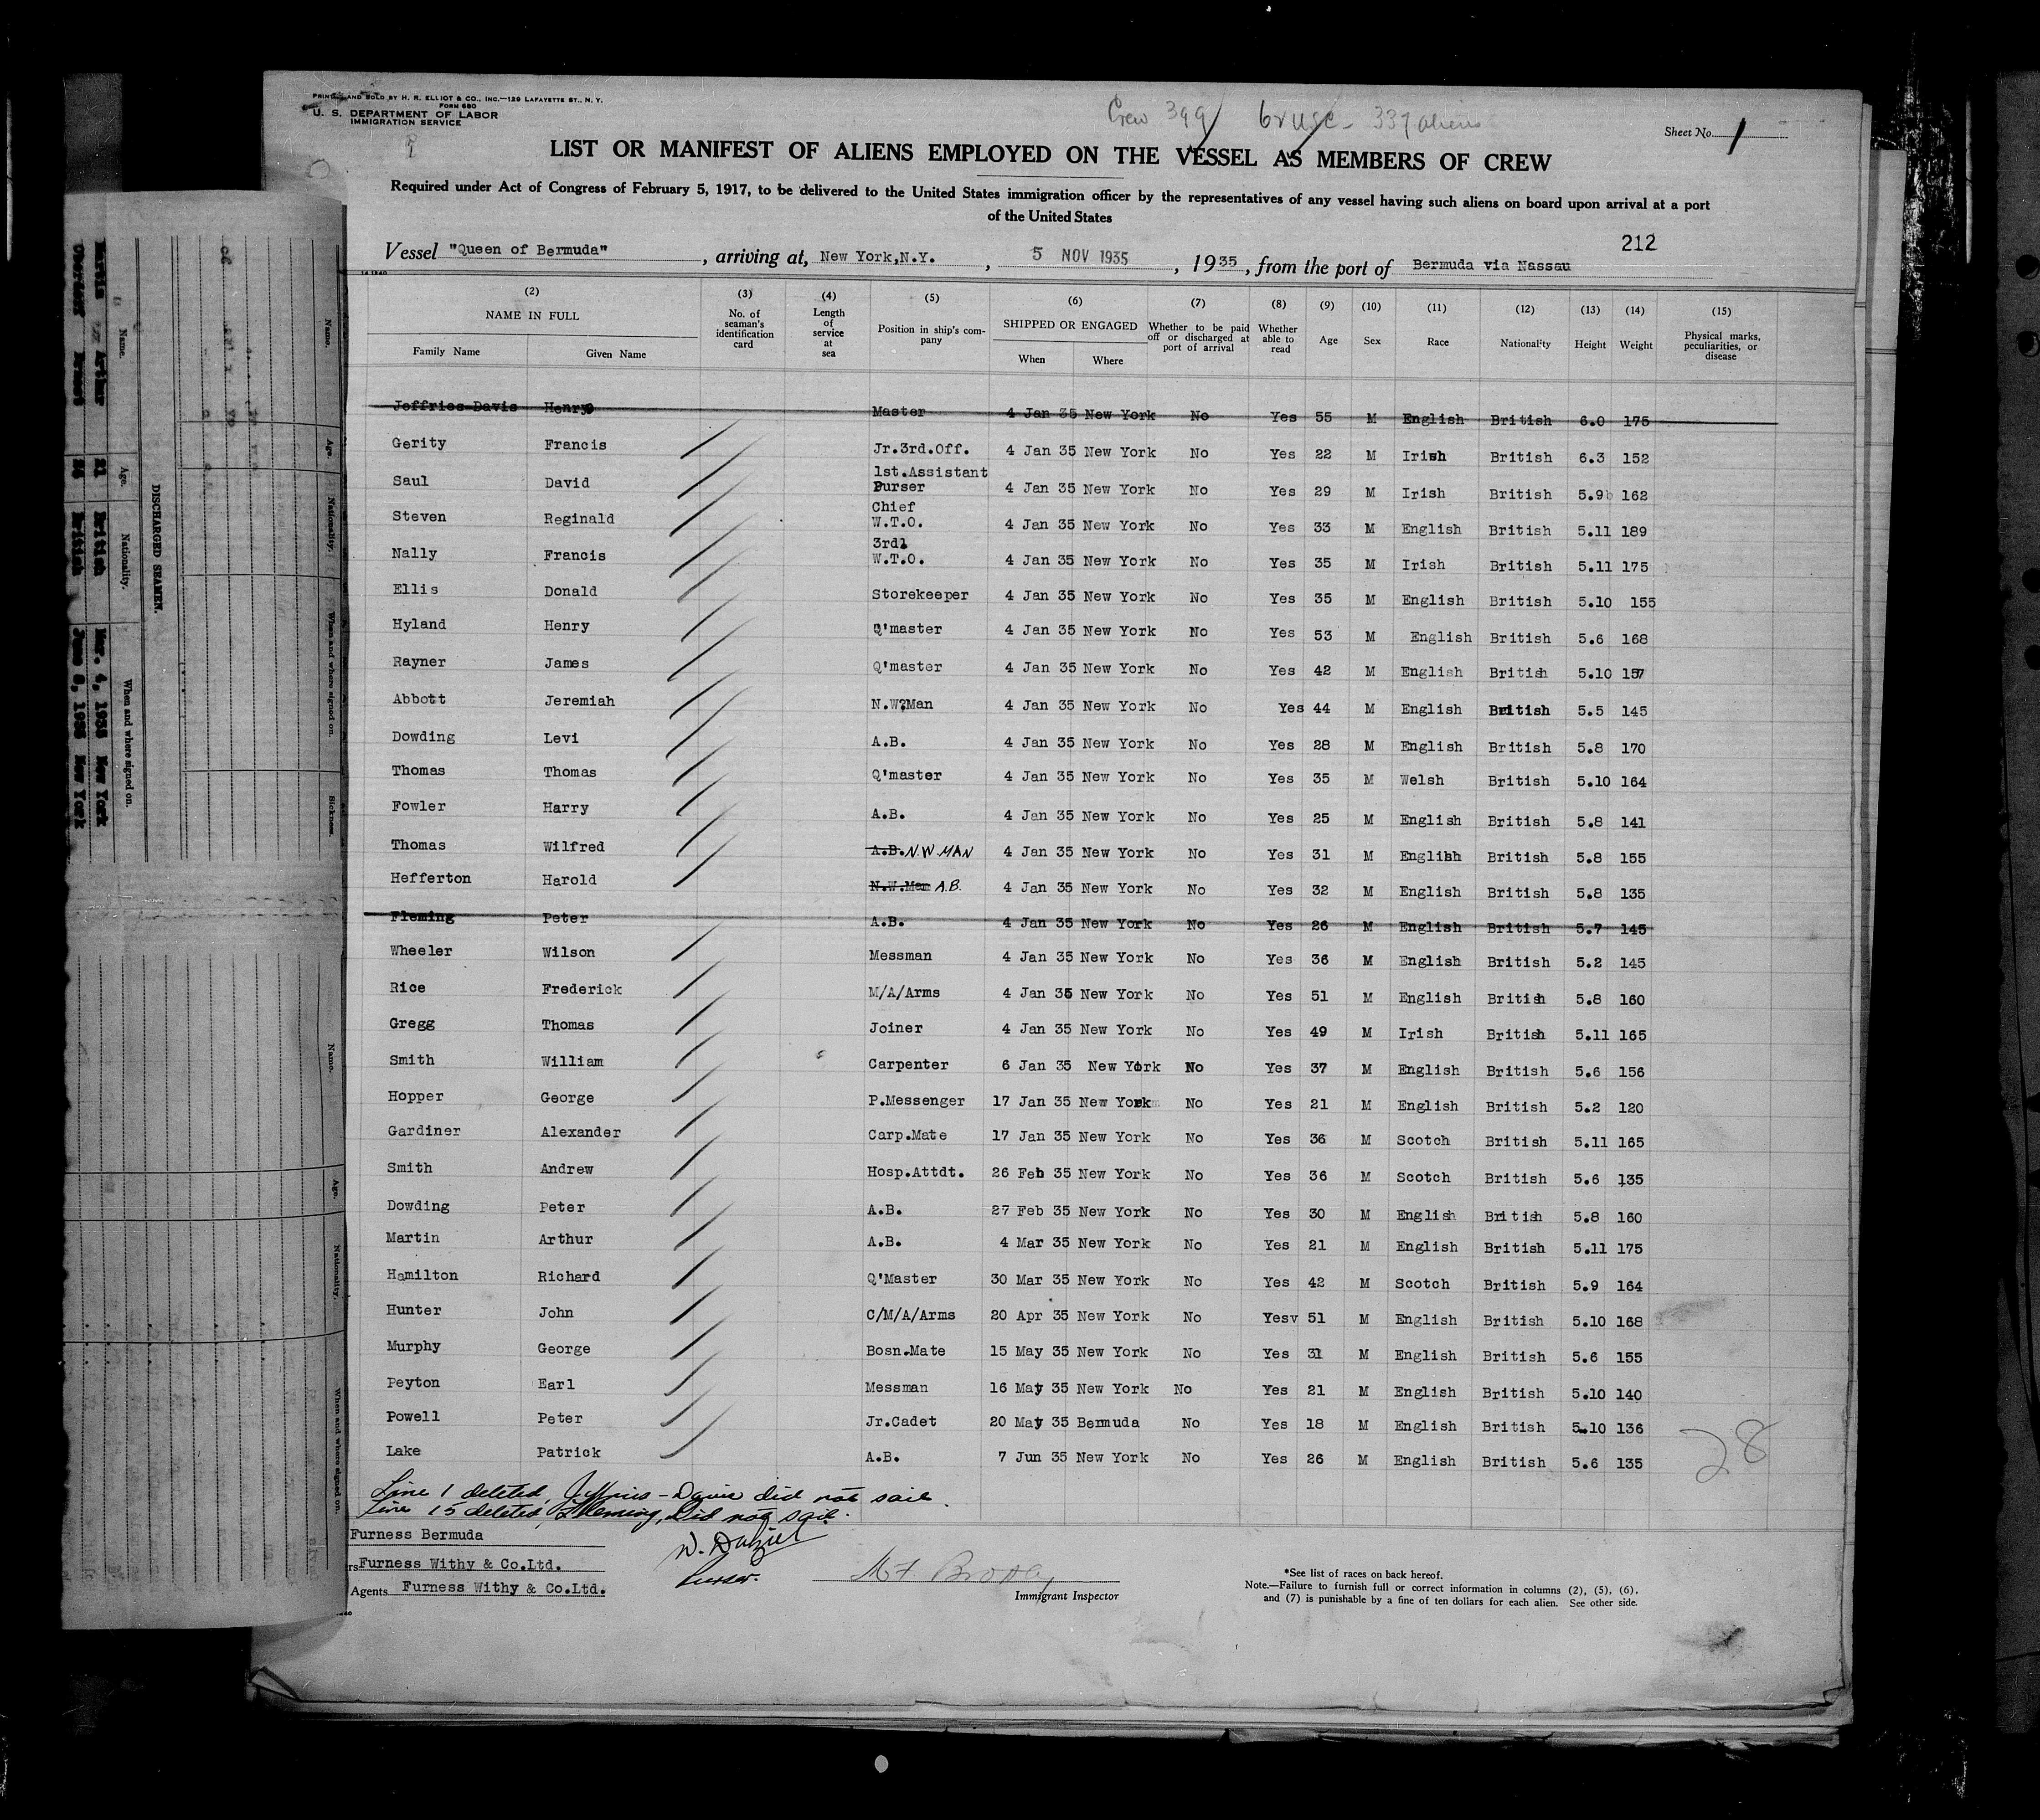 PRINTED AND SOLD BY H. R. ELLIOT & CO., INC.—129 LAFAYETTE ST., N. Y.
FORM 680
U. S. DEPARTMENT OF LABOR
IMMIGRATION SERVICE
Crew 399 6 v USC - 337 aliens
Sheet No. 1
LIST OR MANIFEST OF ALIENS EMPLOYED ON THE VESSEL AS MEMBERS OF CREW
Required under Act of Congress of February 5, 1917, to be delivered to the United States immigration officer by the representatives of any vessel having such aliens on board upon arrival at a port
of the United States
212
Vessel "Queen of Bermuda", arriving at, New York,N.Y., 5 NOV 1935, 1935, from the port of Bermuda via Nassau
(2) NAME IN FULL Family Name Given Name
(3) No. of seaman's identification card
(4) Length of service at sea
(5) Position in ship's company
(6) SHIPPED OR ENGAGED When Where
(7) Whether to be paid off or discharged at port of arrival
(8) Whether able to read
(9) Age
(10) Sex
(11) Race
(12) Nationality
(13) Height
(14) Weight
(15) Physical marks, peculiarities, or disease
Jeffries-Davis Henry Master 4 Jan 35 New York No Yes 55 M English British 6.0 175
Gerity Francis Jr.3rd.Off. 4 Jan 35 New York No Yes 22 M Irish British 6.3 152
Saul David 1st.Assistant Purser 4 Jan 35 New York No Yes 29 M Irish British 5.9 162
Steven Reginald Chief W.T.O. 4 Jan 35 New York No Yes 33 M English British 5.11 189
Nally Francis 3rd W.T.O. 4 Jan 35 New York No Yes 35 M Irish British 5.11 175
Ellis Donald Storekeeper 4 Jan 35 New York No Yes 35 M English British 5.10 155
Hyland Henry Q'master 4 Jan 35 New York No Yes 53 M English British 5.6 168
Rayner James Q'master 4 Jan 35 New York No Yes 42 M English British 5.10 157
Abbott Jeremiah N.W?Man 4 Jan 35 New York No Yes 44 M English British 5.5 145
Dowding Levi A.B. 4 Jan 35 New York No Yes 28 M English British 5.8 170
Thomas Thomas Q'master 4 Jan 35 New York No Yes 35 M Welsh British 5.10 164
Fowler Harry A.B. 4 Jan 35 New York No Yes 25 M English British 5.8 141
Thomas Wilfred A.B. N.W.MAN 4 Jan 35 New York No Yes 31 M English British 5.8 155
Hefferton Harold N.W.Man A.B. 4 Jan 35 New York No Yes 32 M English British 5.8 135
Fleming Peter A.B. 4 Jan 35 New York No Yes 26 M English British 5.7 145
Wheeler Wilson Messman 4 Jan 35 New York No Yes 36 M English British 5.2 145
Rice Frederick M/A/Arms 4 Jan 35 New York No Yes 51 M English British 5.8 160
Gregg Thomas Joiner 4 Jan 35 New York No Yes 49 M Irish British 5.11 165
Smith William Carpenter 6 Jan 35 New York No Yes 37 M English British 5.6 156
Hopper George P.Messenger 17 Jan 35 New York No Yes 21 M English British 5.2 120
Gardiner Alexander Carp.Mate 17 Jan 35 New York No Yes 36 M Scotch British 5.11 165
Smith Andrew Hosp.Attdt. 26 Feb 35 New York No Yes 36 M Scotch British 5.6 135
Dowding Peter A.B. 27 Feb 35 New York No Yes 30 M English British 5.8 160
Martin Arthur A.B. 4 Mar 35 New York No Yes 21 M English British 5.11 175
Hamilton Richard Q'Master 30 Mar 35 New York No Yes 42 M Scotch British 5.9 164
Hunter John C/M/A/Arms 20 Apr 35 New York No Yesv 51 M English British 5.10 168
Murphy George Bosn.Mate 15 May 35 New York No Yes 31 M English British 5.6 155
Peyton Earl Messman 16 May 35 New York No Yes 21 M English British 5.10 140
Powell Peter Jr.Cadet 20 May 35 Bermuda No Yes 18 M English British 5.10 136
Lake Patrick A.B. 7 Jun 35 New York No Yes 26 M English British 5.6 135
28
Line 1 deleted, Jeffries-Davis did not sail.
Line 15 deleted, Fleming, Did not sail.
Furness Bermuda
rs Furness Withy & Co.Ltd.
Agents Furness Withy & Co.Ltd.
W. Dalziel
Purser.
Immigrant Inspector
*See list of races on back hereof.
Note.—Failure to furnish full or correct information in columns (2), (5), (6),
and (7) is punishable by a fine of ten dollars for each alien. See other side.
DISCHARGED SEAMEN.
Name. Age. Nationality. When and where signed on.
Martin Arthur 21 British Mar. 4, 1935 New York
British June 8, 1935 New York
Name. Age. Nationality. When and where signed on. Sickness.
Name. Age. Nationality. When and where signed on.